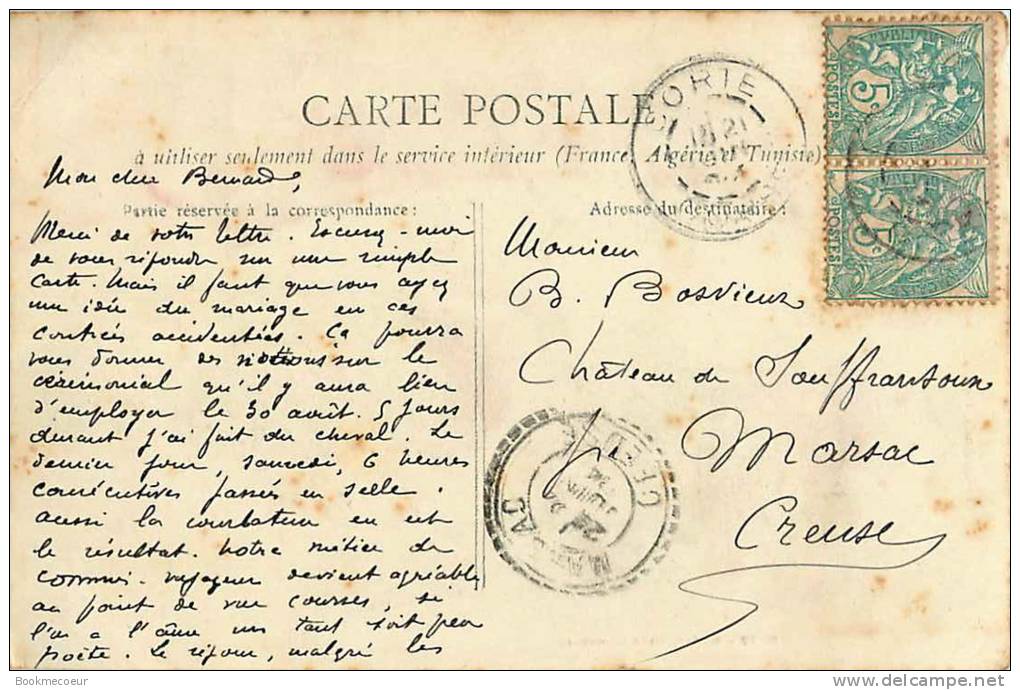 CARTE POSTALE
à utiliser seulement dans le service intérieur (France, Algérie et Tunisie)
Partie réservée à la correspondance :
Mon cher Bernard,
Merci de votre lettre. Excusez-moi
de vous répondre sur une simple
carte. Mais il faut que vous ayez
une idée du mariage en ces
contrées accidentées. Ça pourra
vous donner des notions sur le
cérémonial qu'il y aura lieu
d'employer le 30 août. 5 jours
durant j'ai fait du cheval. Le
dernier jour, samedi, 6 heures
consécutives passées en selle.
aussi la courbature en est
le résultat. Notre métier de
commis-voyageur devient agréable
au point de vue courses, si
l'on a l'âme un tant soit peu
poète. Le séjour, malgré les
Adresse du destinataire :
Monsieur
B. Bosvieux
Château de
Marsac
Creuse
CORTE
21
MARSAC
CREUSE
5c
POSTES
5c
POSTES
Bookmecoeur
www.delcampe.net